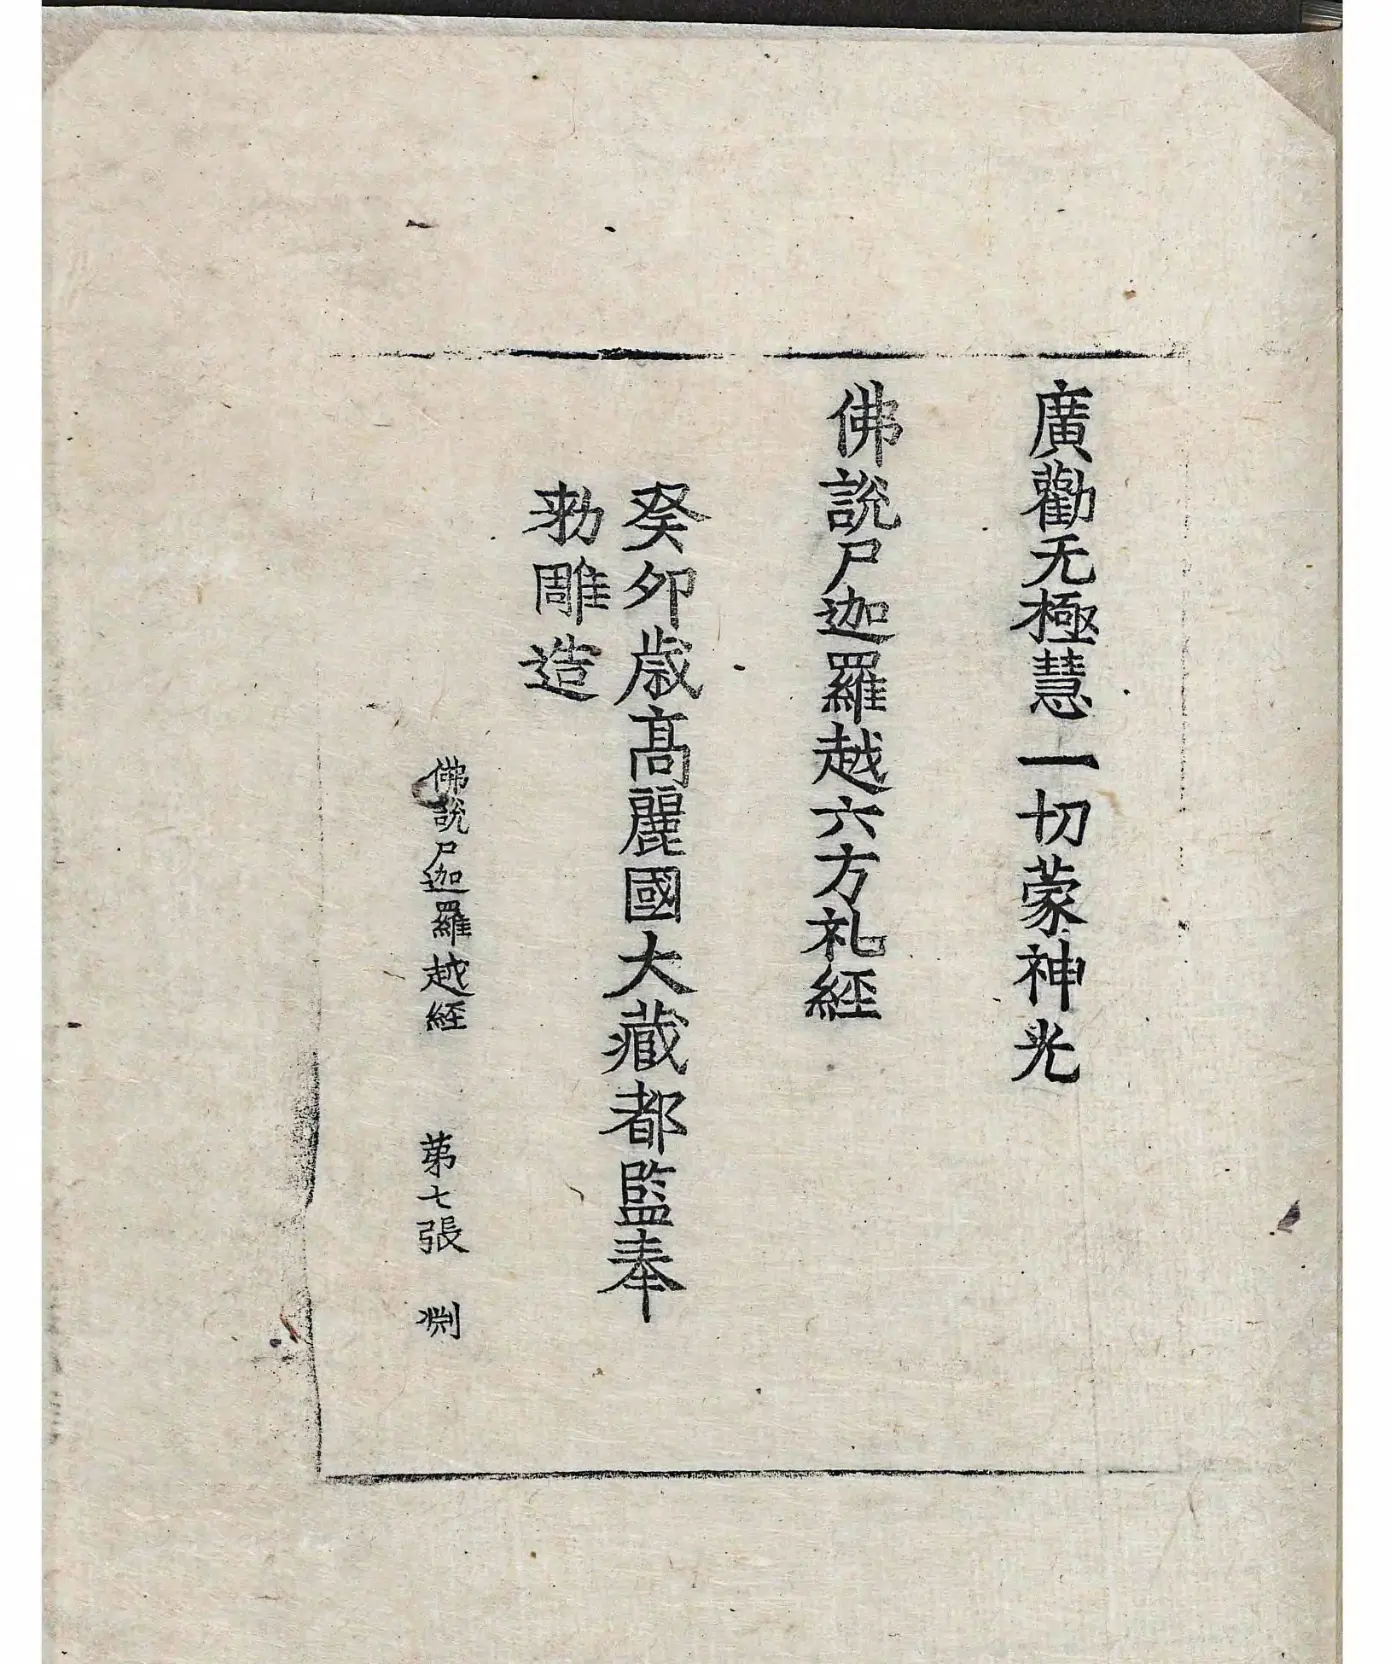 廣勸无極慧一切蒙神光
佛說尸迦羅越六方礼經
癸卯歲高麗國大藏都監奉
勑雕造
佛說尸迦羅越經 苐七張 渕